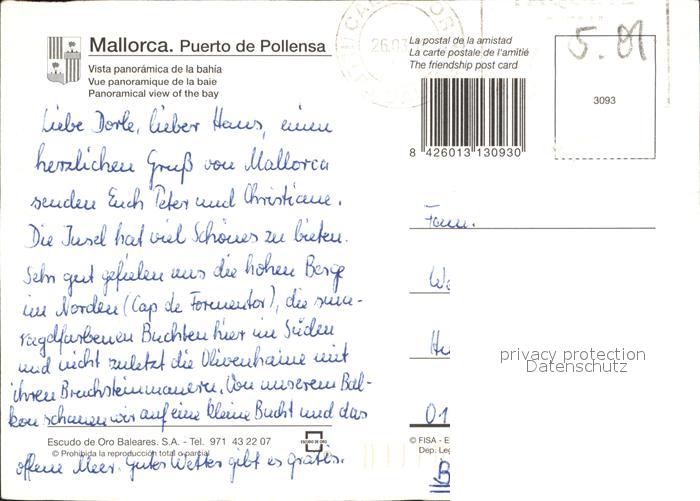 Mallorca. Puerto de Pollensa
Vista panorámica de la bahía
Vue panoramique de la baie
Panoramical view of the bay
La postal de la amistad
La carte postale de l'amitié
The friendship post card
5.01
3093
8 426013 130930
Liebe Dorle, lieber Hans, einen
herzlichen Gruß von Mallorca
senden Euch Peter und Christiane.
Die Insel hat viel Schönes zu bieten.
Sehr gut gefielen uns die hohen Berge
im Norden (Cap de Formentor), die sma-
ragdfarbenen Buchten hier im Süden
und nicht zuletzt die Olivenhaine mit
ihren Bruchsteinmauern. Von unserem Bal-
kon schauen wir auf eine kleine Bucht und das
offene Meer. Gutes Wetter gibt es gratis.
Fam.
We
Hu
01
B
privacy protection
Datenschutz
Escudo de Oro Baleares. S.A. - Tel. 971 43 22 07
© Prohibida la reproducción total o parcial
ESCUDO DE ORO
© FISA - E
Dep. Leg